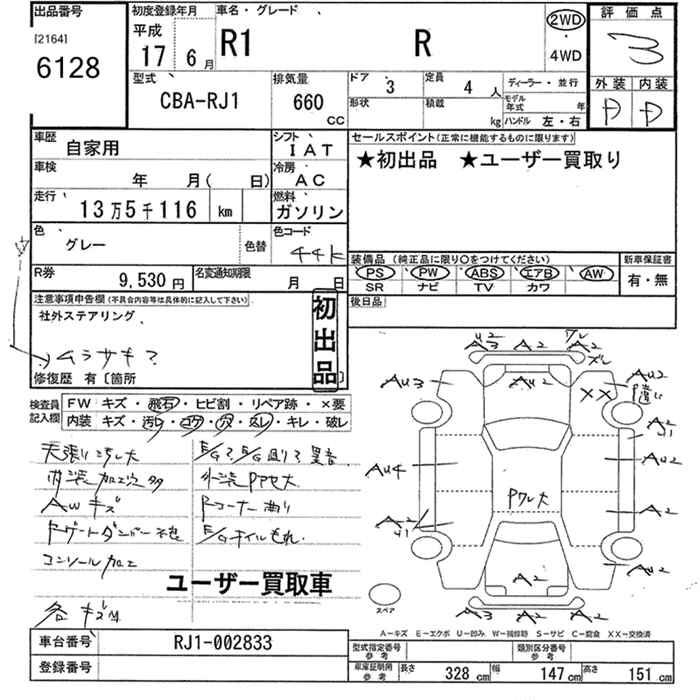 出品番号
[2164]
6128
初度登録年月
平成
17 6月
車名・グレード
R1 R
2WD
・
4WD
評価点
3
外装 内装
D D
型式
CBA-RJ1
排気量
660
CC
ドア 3
定員 4 人
形状
積載 kg
ディーラー・並行
モデル年式 年
ハンドル 左・右
車歴 自家用
シフト IAT
車検 年 月( 日)
冷房 AC
走行 13万5千116 km
燃料 ガソリン
色 グレー
色替
色コード 44K
R券 9,530円
名変通知期限 月 日
セールスポイント(正常に機能するものに限ります)
★初出品 ★ユーザー買取り
装備品(純正品に限り○をつけてください)
PS PW ABS エアB AW
SR ナビ TV カワ
新車保証書
有・無
後日品
注意事項申告欄(不具合内容等は具体的に記入して下さい)
社外ステアリング
ムラサキ?
初出品
修復歴 有〔箇所 〕
検査員記入欄
FW キズ・飛石・ヒビ割・リペア跡・×要
内装 キズ・汚レ・コゲ・穴・スレ・キレ・破レ
天張り汚レ大
内装加工穴多
AWキズ
コンソール加工
各キズ凹
外装Pアセ大
Fコーナー曲り
E/Gオイルもれ
ユーザー買取車
U2
A3 A2 A2
AU2
AU3 XX AU2
P違い
A2
AU4 AU2
Pワレ大
A2 A2
A2 AU2
A3 A2 A2
スペア
A-キズ E-エクボ U-凹み W-補修跡 S-サビ C-腐食 XX-交換済
車台番号 RJ1-002833
登録番号
型式指定番号 参考
類別区分番号 参考
車庫証明用 参考
長さ 328 cm 幅 147 cm 高さ 151 cm